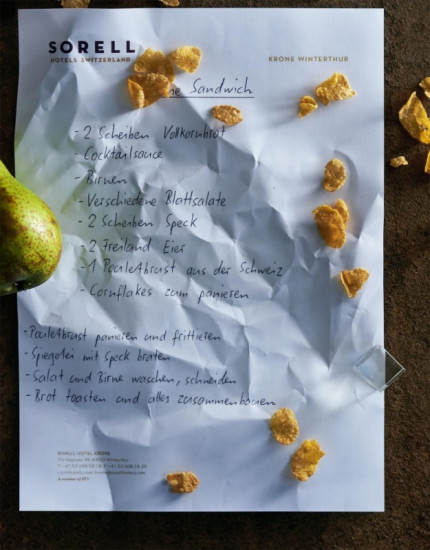 SORELL
HOTELS SWITZERLAND
KRONE WINTERTHUR
ne Sandwich
- 2 Scheiben Vollkornbrot
- Cocktailsauce
- Birnen
- Verschiedene Blattsalate
- 2 Scheiben Speck
- 2 Freiland Eier
- 1 Pouletbrust aus der Schweiz
- Cornflakes zum panieren
- Pouletbrust panieren und frittieren
- Spiegelei mit Speck braten
- Salat und Birne waschen, schneiden
- Brot toasten und alles zusammenbauen
SORELL HOTEL KRONE